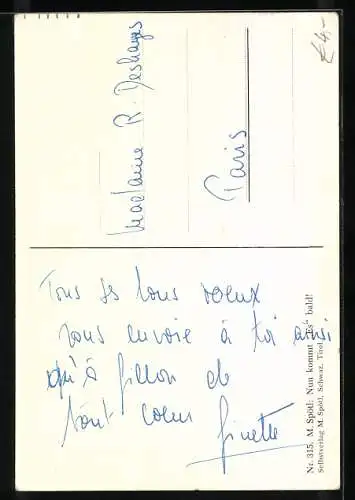 € 4,-
Madame R. Deshayes
Paris
Tous ses bons voeux
vous envoie à toi ainsi
qu'à fillon de
tout coeur Ginette
Nr. 315. M. Spötl: Nun kommt „Es" bald!
Selbstverlag M. Spötl, Schwaz, Tirol